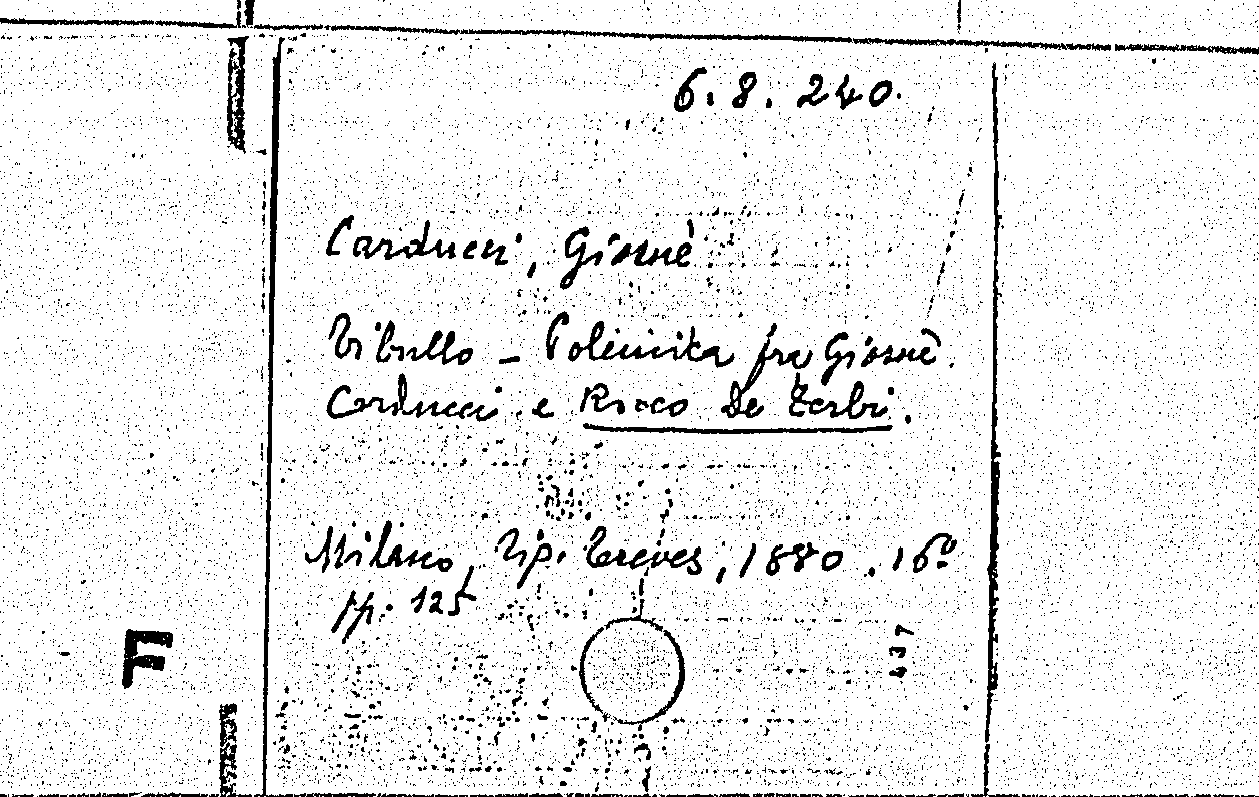 6.8.240.
Carducci, Giosuè
Tibullo - Polemica fra Giosuè
Carducci e Rocco De Zerbi.
Milano, Tip. Treves, 1880. 16º
pp. 125
437
F